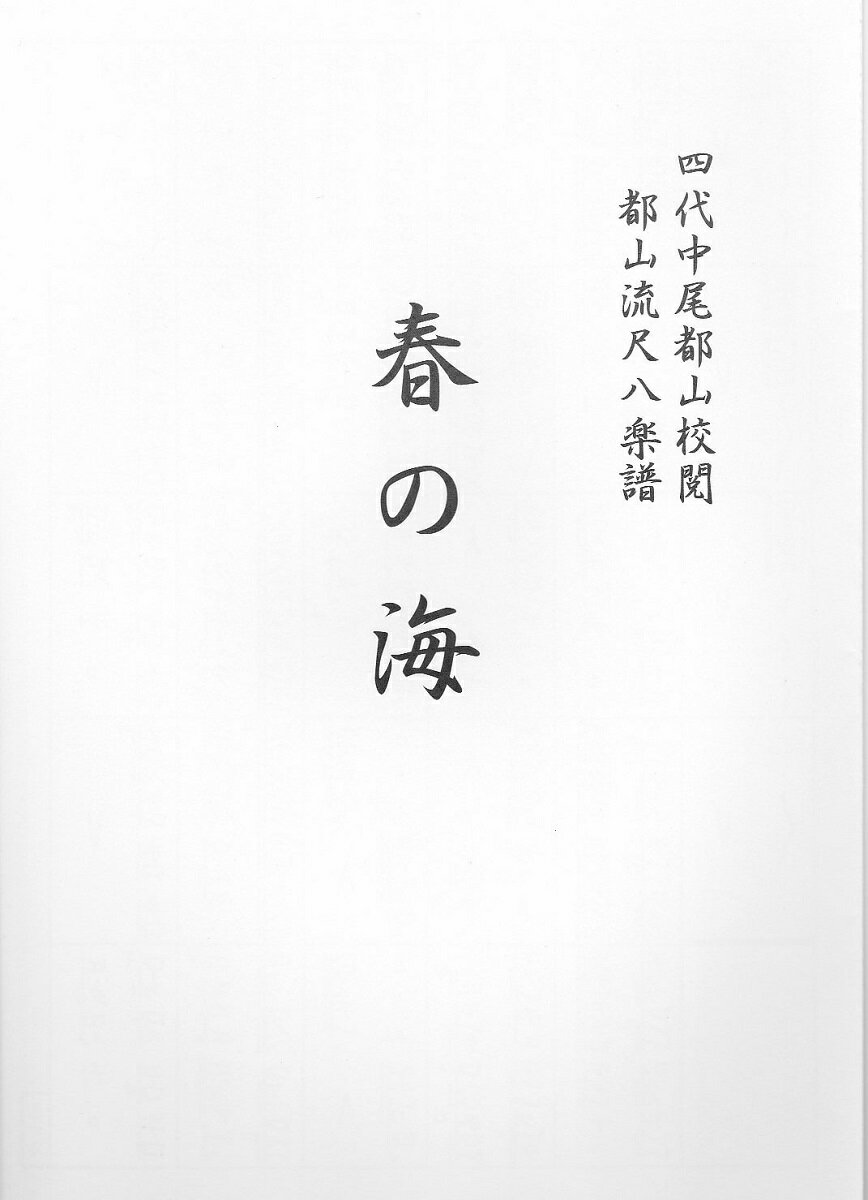 四代中尾都山校閲
都山流尺八楽譜
春の海